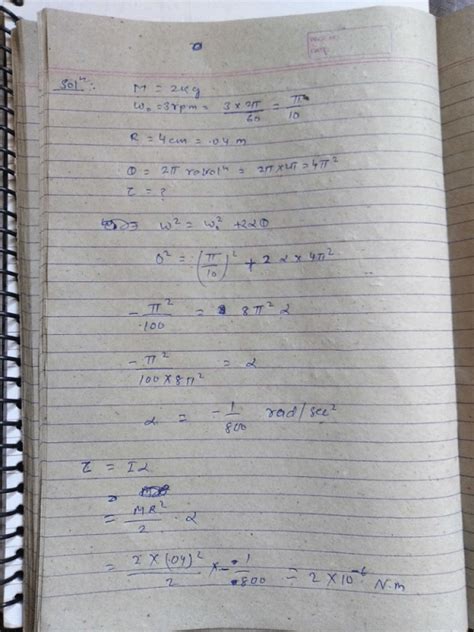 Solⁿ:
M = 2kg
W₀ = 3rpm = 3 × 2π / 60 = π / 10
R = 4cm = .04 m
θ = 2π = 2π × 2π = 4π²
τ = ?
ω² = ω₀² + 2αθ
0² = (π/10)² + 2 α × 4π²
- π² / 100 = 8π² α
- π² / 100 × 8π² = α
α = - 1 / 800 rad/sec²
τ = Iα
= MR² / 2 · α
= 2 × (.04)² / 2 × - 1 / 800 = 2 × 10⁻⁶ N.m